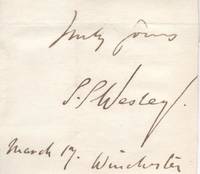 Truly yours
S. S. Wesley.
March 17. Winchester